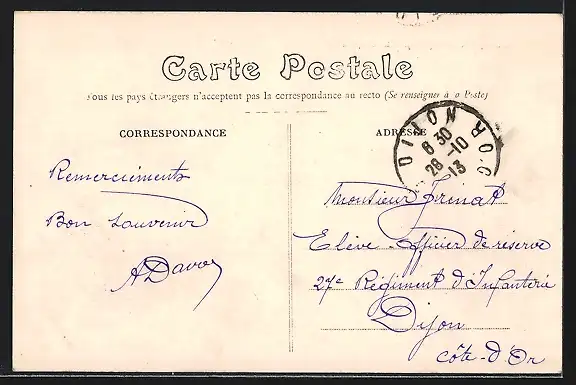 Carte Postale
Tous les pays étrangers n'acceptent pas la correspondance au recto (Se renseigner à la Poste)
CORRESPONDANCE
ADRESSE
DIJON R. CÔTE D'OR
6 30
28 -10
13
Remerciements
Bon souvenir
Monsieur
Elève-officier de réserve
27e Régiment d'Infanterie
Dijon
Côte-d'Or